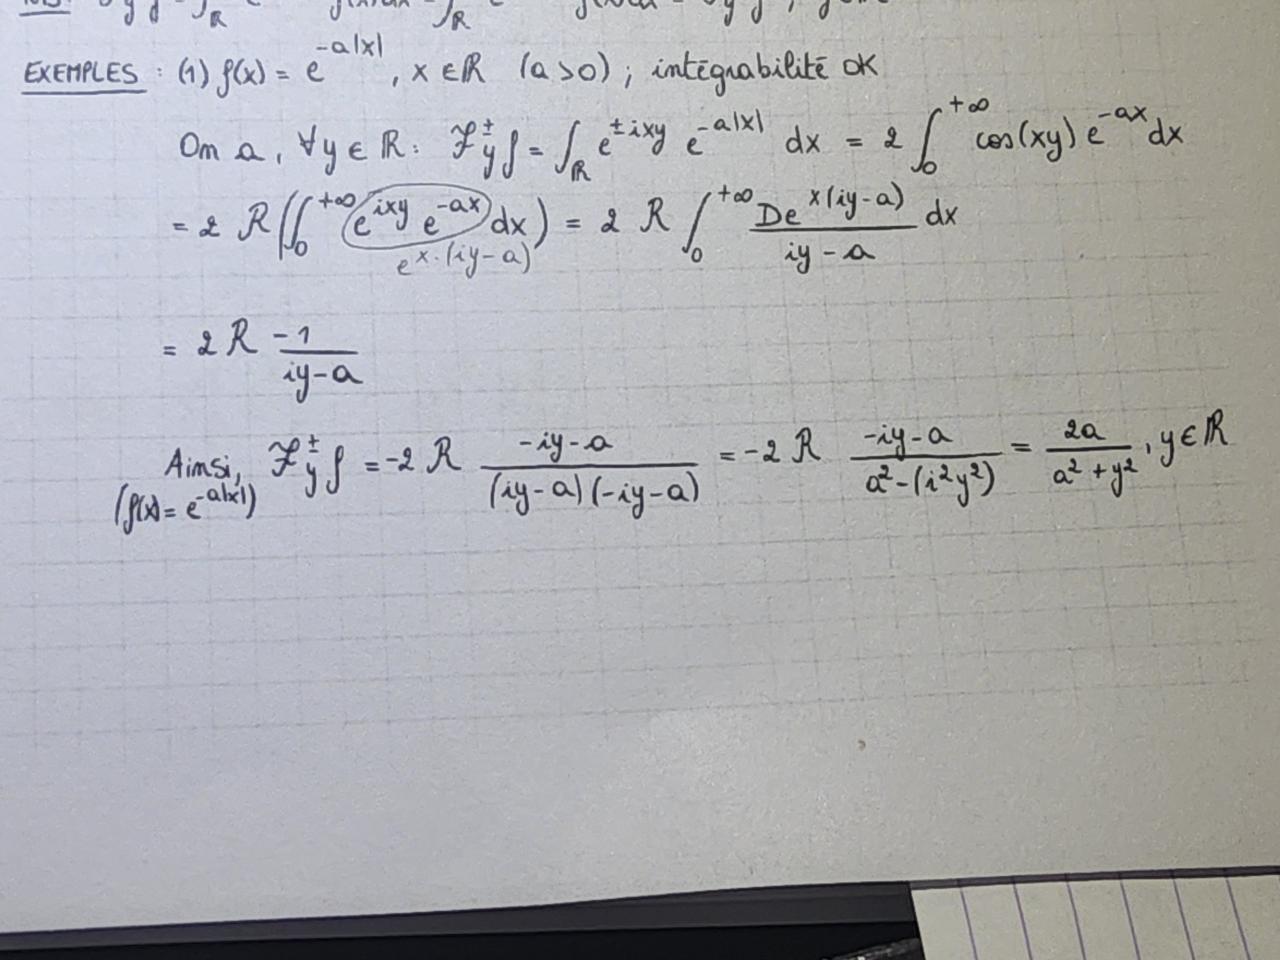 EXEMPLES : (1) f(x) = e^{-a|x|}, x ∈ ℝ (a > 0) ; intégrabilité OK
On a, ∀y ∈ ℝ : ℱ_y^± f = ∫_ℝ e^{±ixy} e^{-a|x|} dx = 2 ∫_0^{+∞} cos(xy) e^{-ax} dx
= 2 ℛ(∫_0^{+∞} e^{ixy} e^{-ax} dx) = 2 ℛ ∫_0^{+∞} \frac{De^{x(iy-a)}}{iy-a} dx
e^{x·(iy-a)}
= 2 ℛ \frac{-1}{iy-a}
Ainsi, ℱ_y^± f = -2 ℛ \frac{-iy-a}{(iy-a)(-iy-a)} = -2 ℛ \frac{-iy-a}{a²-(i²y²)} = \frac{2a}{a²+y²}, y ∈ ℝ
(f(x) = e^{-a|x|})